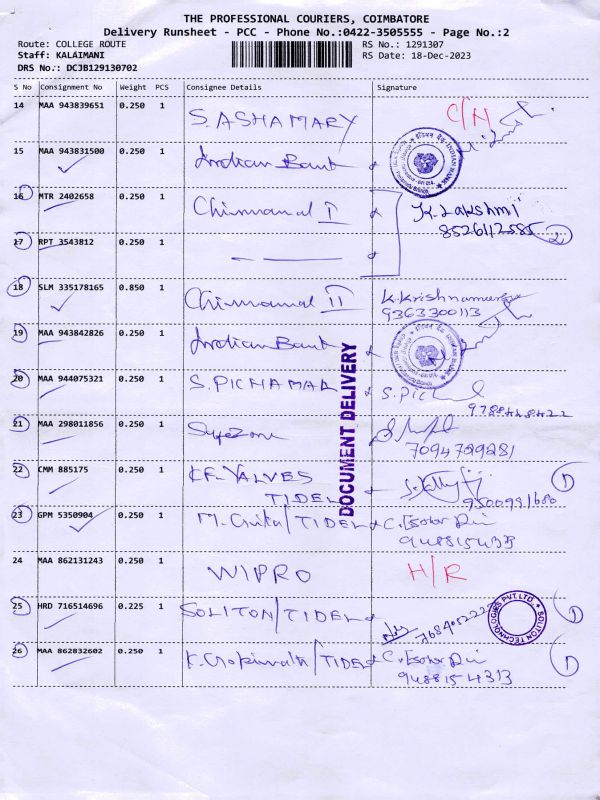 THE PROFESSIONAL COURIERS, COIMBATORE
Delivery Runsheet - PCC - Phone No.:0422-3505555 - Page No.:2
Route: COLLEGE ROUTE
RS No.: 1291307
Staff: KALAIMANI
RS Date: 18-Dec-2023
DRS No.: DCJB129130702
S No Consignment No Weight PCS Consignee Details Signature
14 MAA 943839651 0.250 1 S. ASHA MARY C/N
15 MAA 943831500 0.250 1 Indian Bank
16 MTR 2402658 0.250 1 Chinnamal II K. Lakshmi
8526112585 2
17 RPT 3543812 0.250 1
18 SLM 335178165 0.850 1 Chinnamal II K. Krishnamurthy
9363300113
19 MAA 943842826 0.250 1 Indian Bank
DOCUMENT DELIVERY
20 MAA 944075321 0.250 1 S. PICHAMAL S. Pich
9788468422
21 MAA 298011856 0.250 1
7094729281
22 CMM 885175 0.250 1 KF. VALVES
TIDEL 1
23 GPM 5350904 0.250 1 M. Guita/TIDEL
9488154313
24 MAA 862131243 0.250 1 WIPRO H/R
25 HRD 716514696 0.225 1 SOLITON/TIDEL
SOLITON TECHNOLOGIES PVT.LTD. 1
26 MAA 862832602 0.250 1 K. Gokinath/TIDEL 1
9488154313